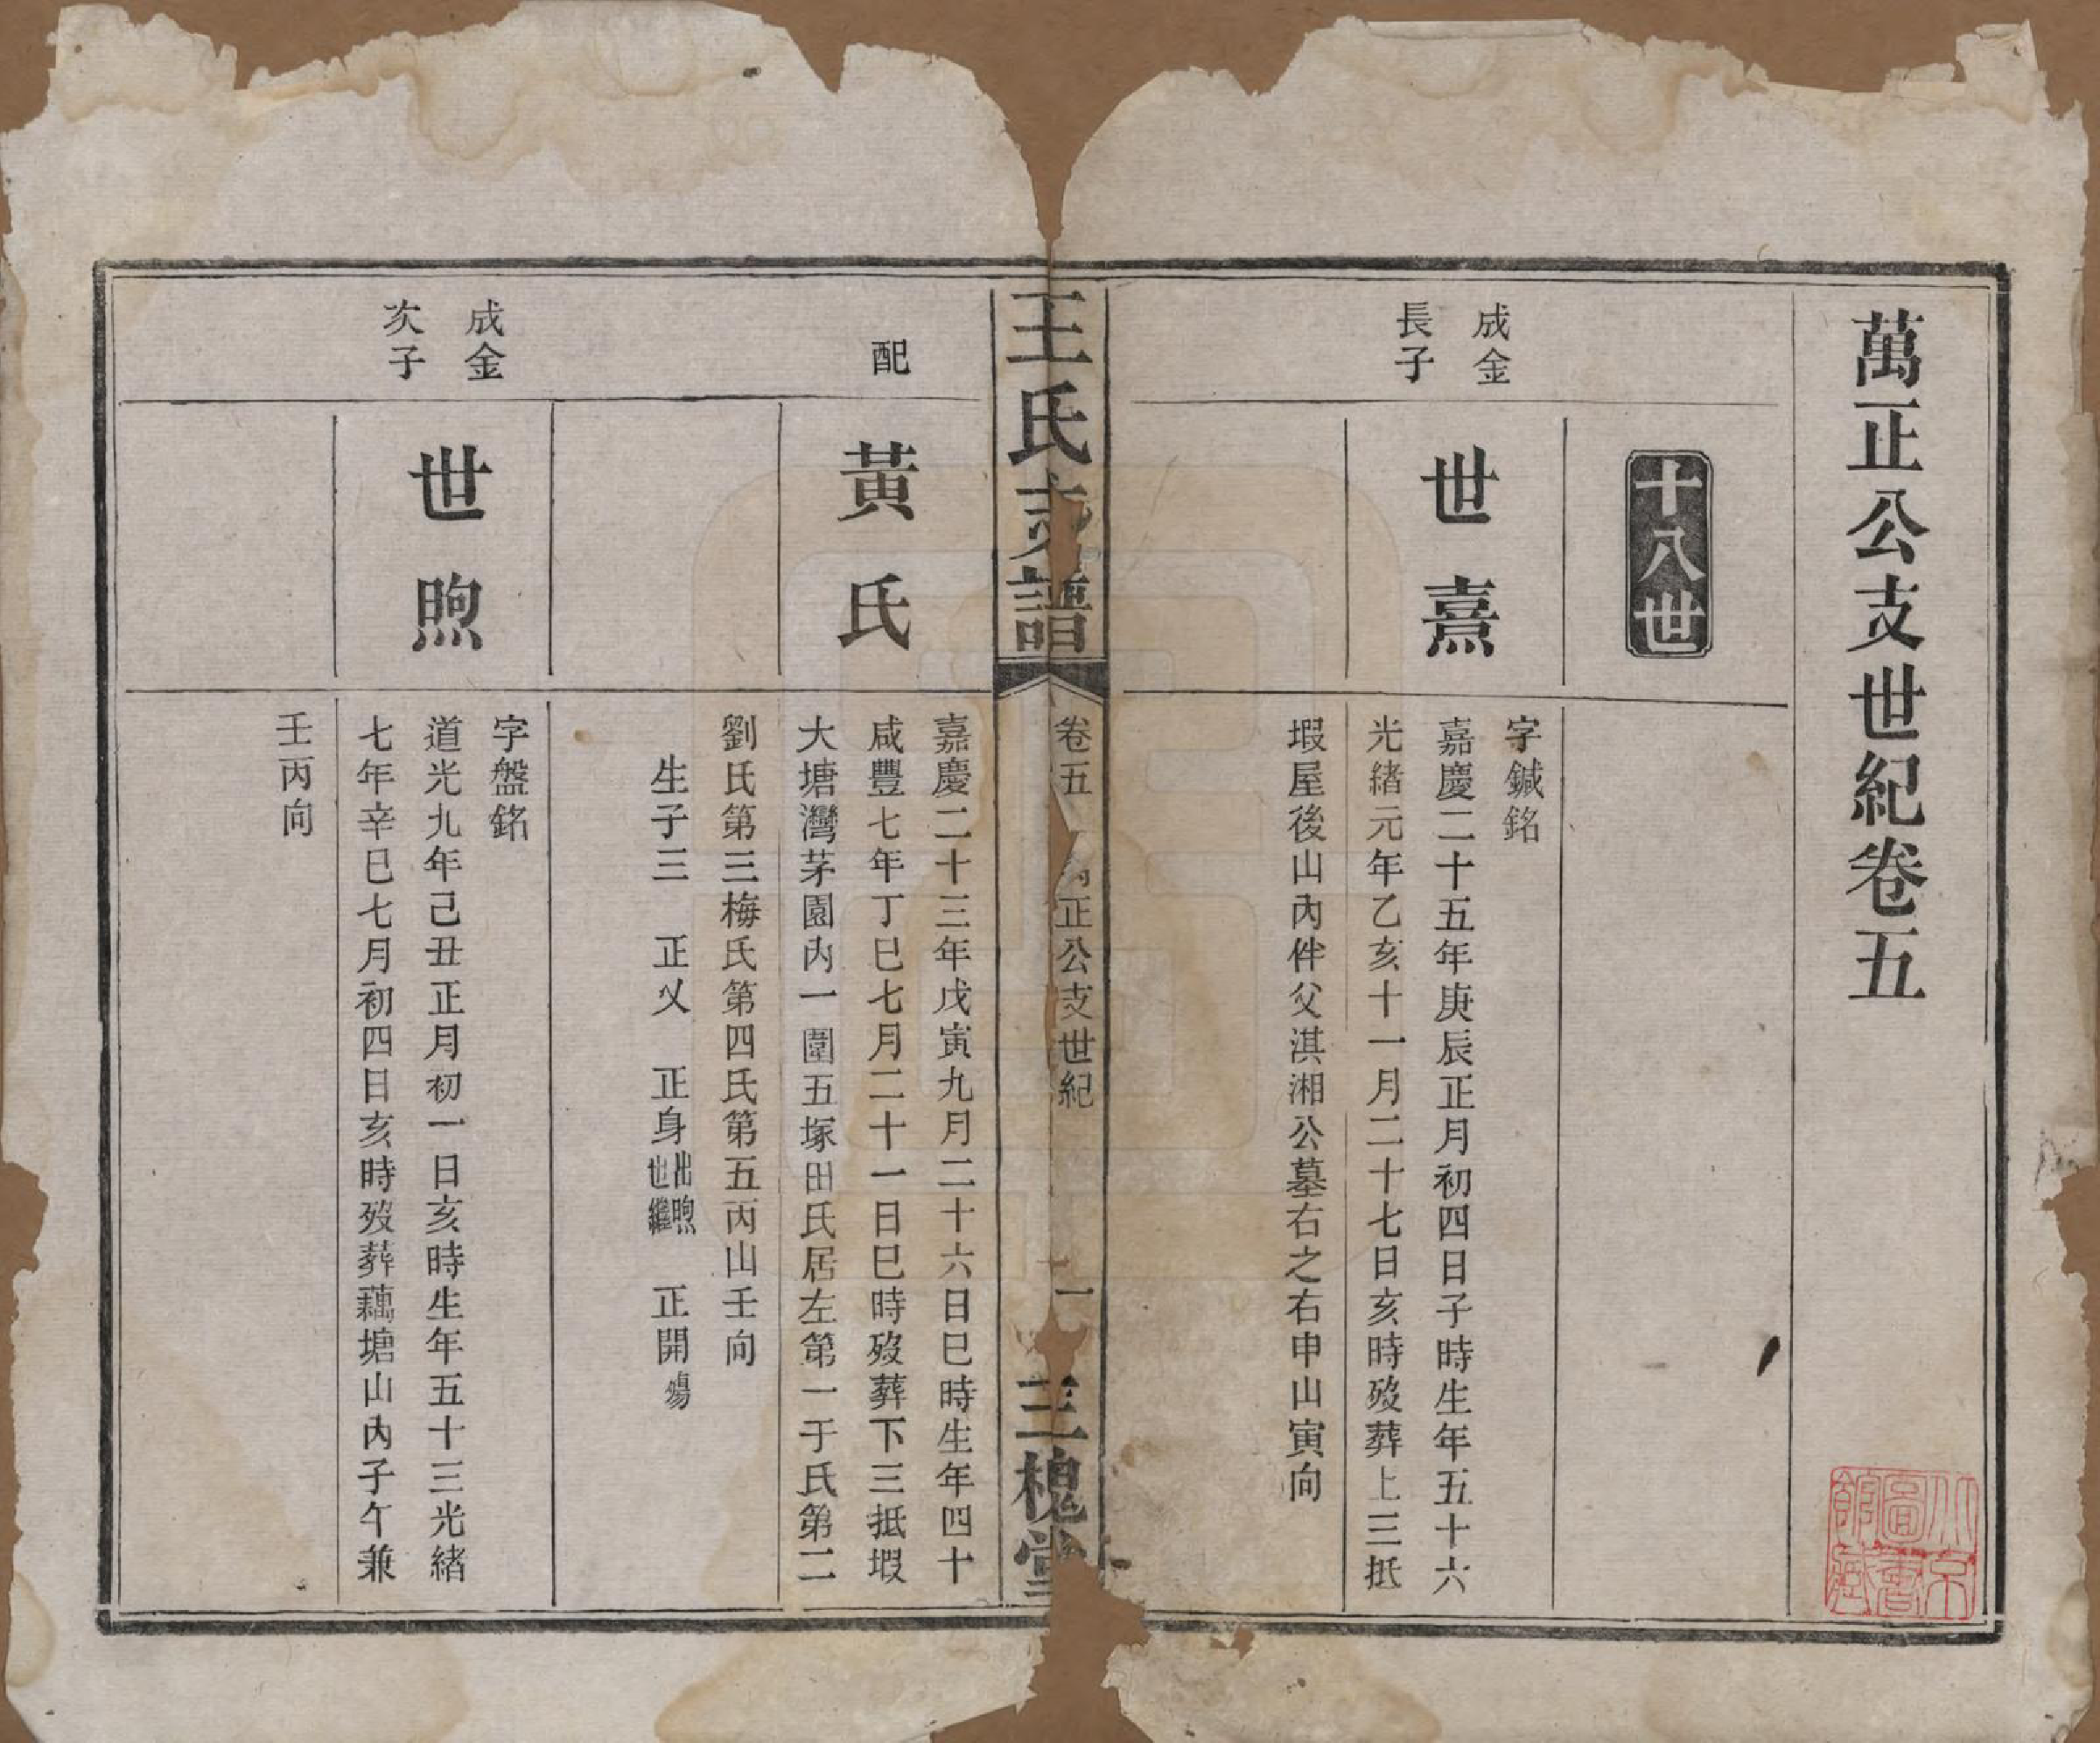 萬正公支世紀卷五
十八世
成金
長子
世熹
字鍼銘
嘉慶二十五年庚辰正月初四日子時生年五十六
光緒元年乙亥十一月二十七日亥時歿葬上三抵
塅屋後山內伴父淇湘公墓右之右申山寅向
王氏支譜
卷五
正公支世紀
一
三槐堂
配
黃氏
嘉慶二十三年戊寅九月二十六日巳時生年四十
咸豐七年丁巳七月二十一日巳時歿葬下三抵塅
大塘灣茅園內一圍五塚田氏居左第一于氏第二
劉氏第三梅氏第四氏第五丙山壬向
生子三 正乂 正身出繼世煦 正開殤
成金
次子
世煦
字盤銘
道光九年己丑正月初一日亥時生年五十三光緒
七年辛巳七月初四日亥時歿葬藕塘山內子午兼
壬丙向
北京
圖書
館藏